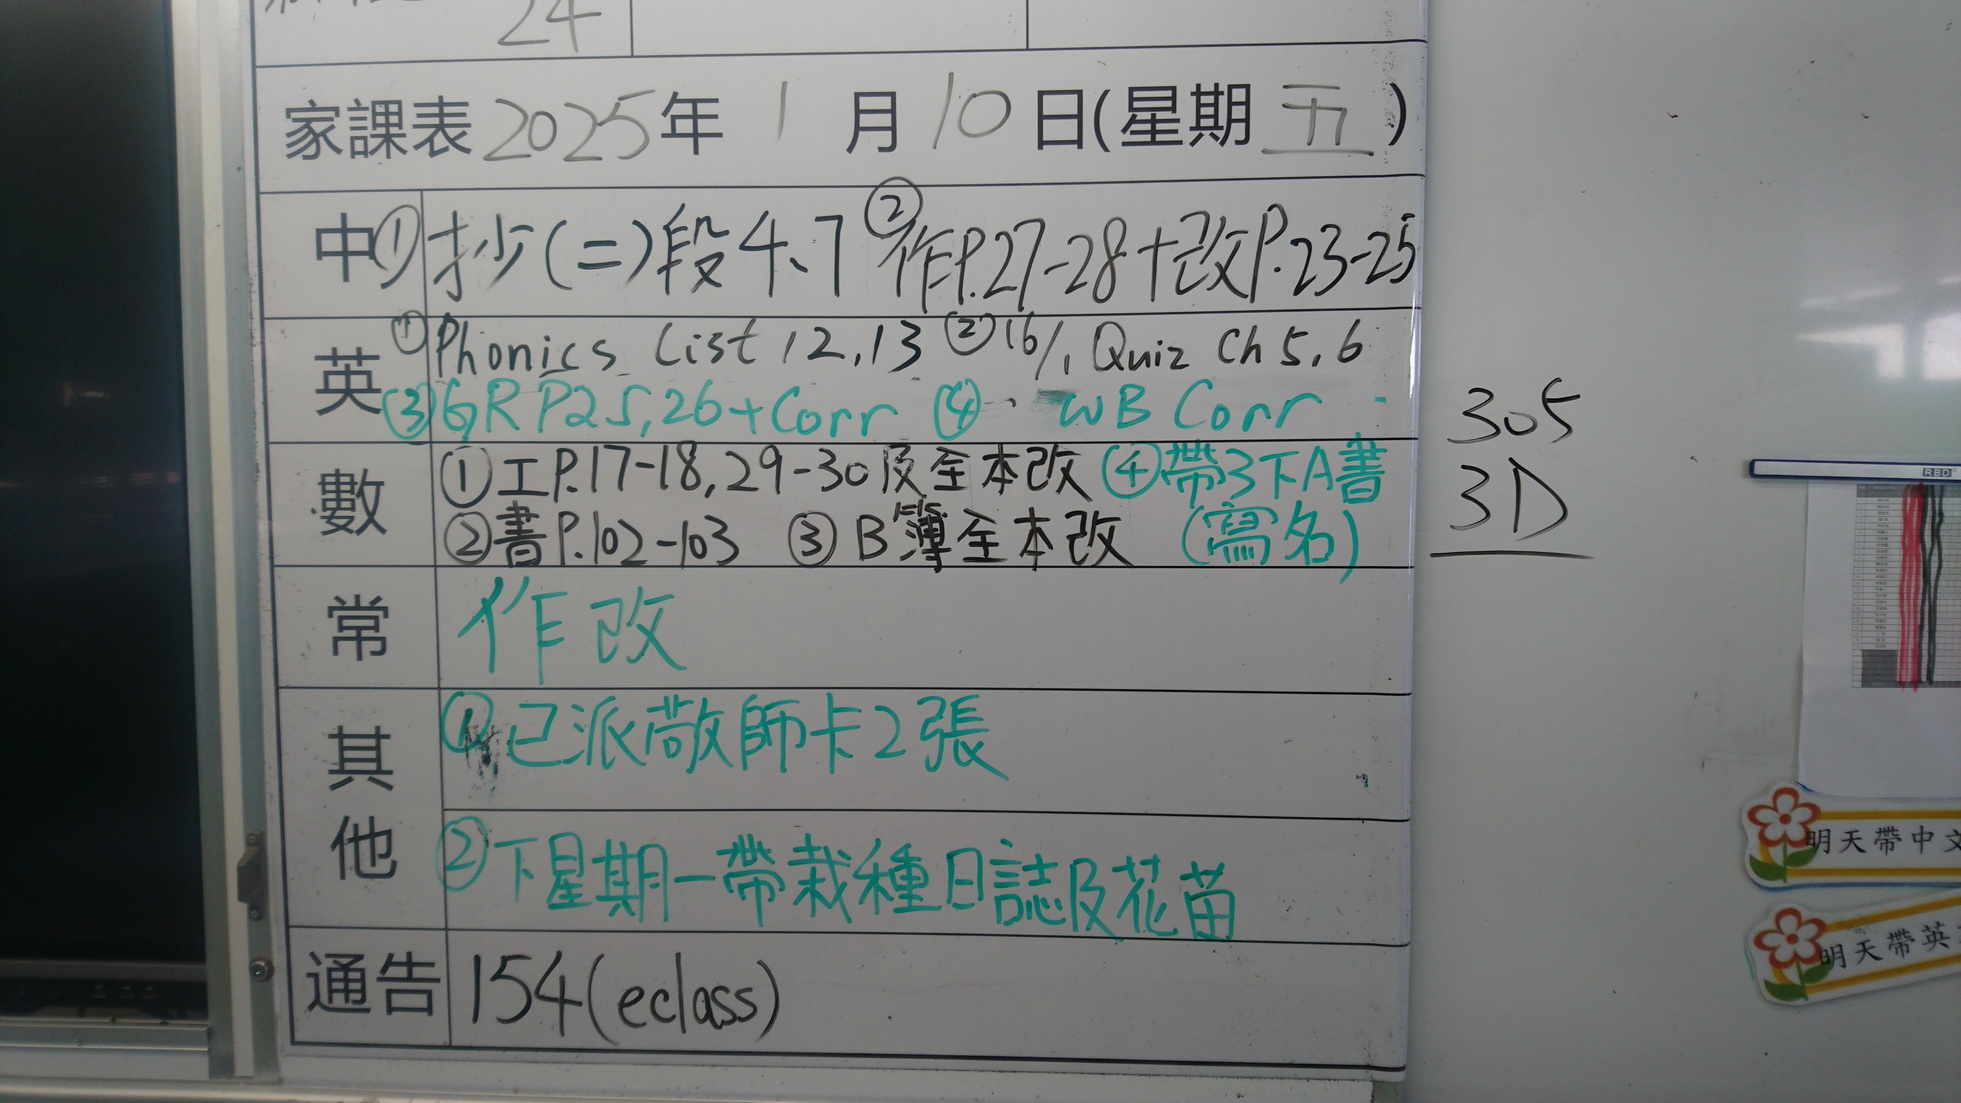 24
家課表 2025年 1月10日(星期五)
中 ①抄(二)段4、7 ②作P.27-28+改P.23-25
英 ①Phonics List 12,13 ②16/1 Quiz Ch 5,6
③GR P25,26+Corr ④ WB Corr
數 ①工P.17-18,29-30及全本改 ④帶3下A書
②書P.102-103 ③B簿全本改 (寫名)
常 作改
其他 ①已派敬師卡2張
②下星期一帶栽種日誌及花苗
通告 154(eclass)
305
3D
RBD
明天帶中文
明天帶英